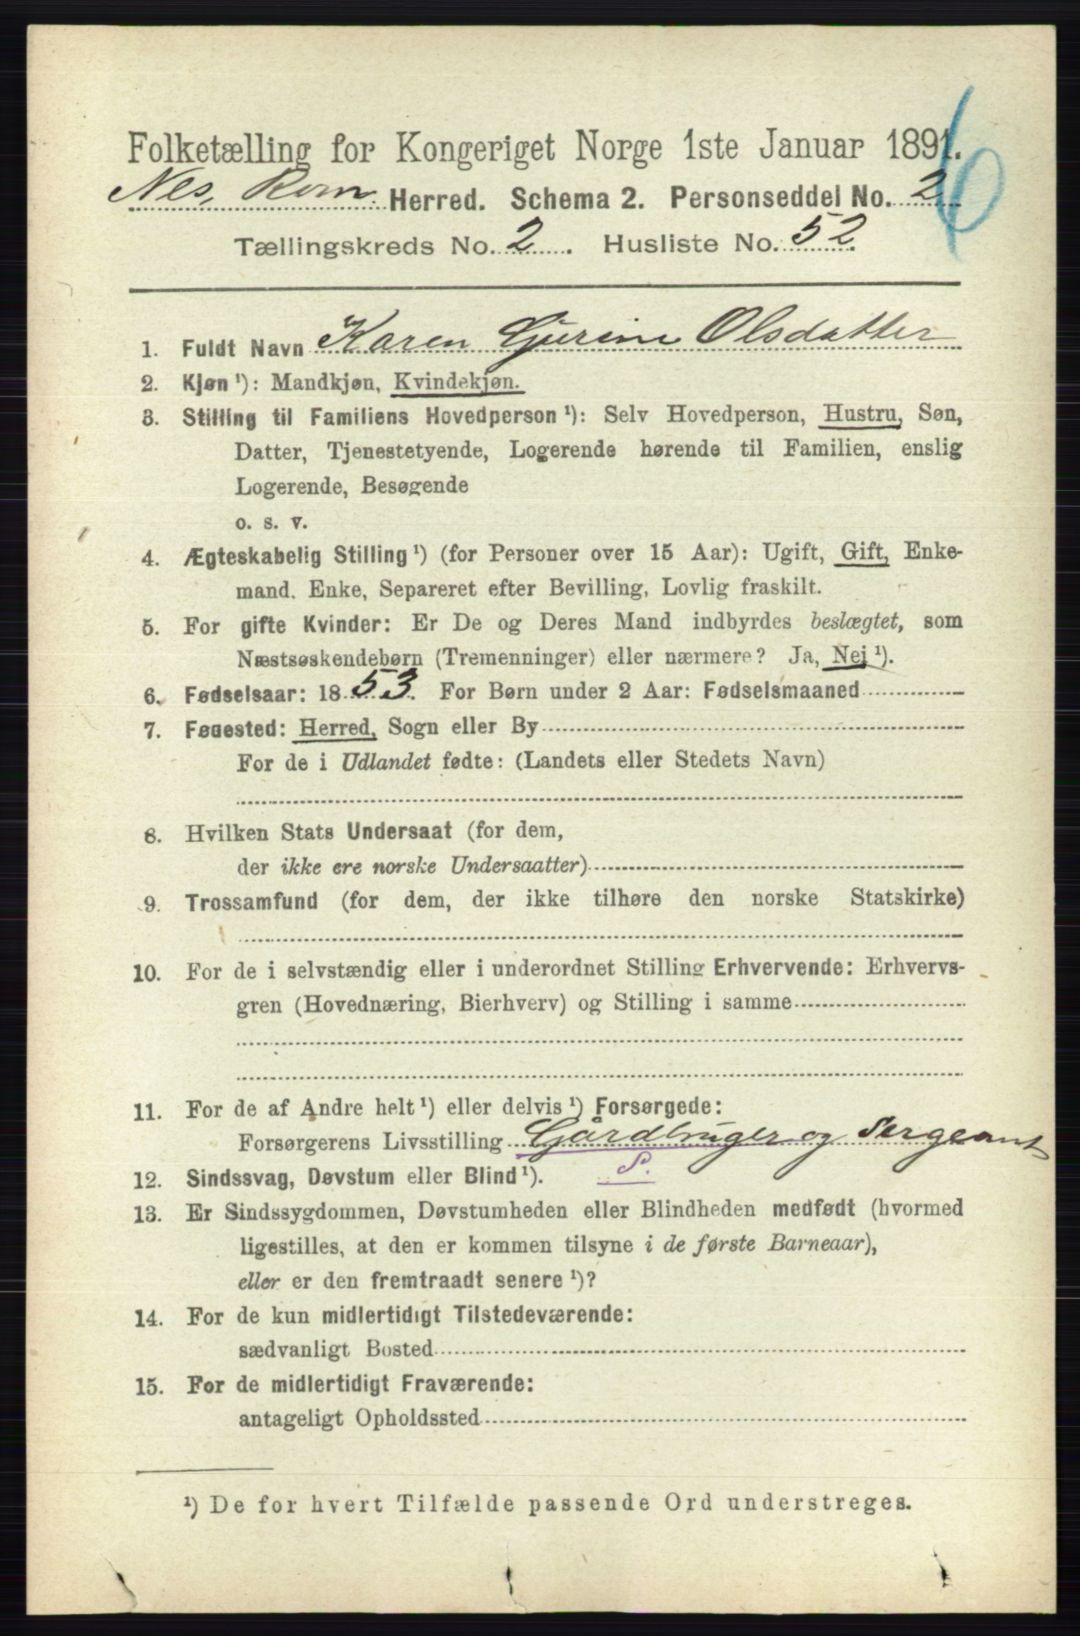 Folketælling for Kongeriget Norge 1ste Januar 1891.
6
Nes, Rom. Herred. Schema 2. Personseddel No. 2
Tællingskreds No. 2. Husliste No. 52
1. Fuldt Navn Karen Gurine Olsdatter
2. Kjøn ¹): Mandkjøn, Kvindekjøn.
3. Stilling til Familiens Hovedperson ¹): Selv Hovedperson, Hustru, Søn,
Datter, Tjenestetyende, Logerende hørende til Familien, enslig
Logerende, Besøgende
o. s. v.
4. Ægteskabelig Stilling ¹) (for Personer over 15 Aar): Ugift, Gift, Enke-
mand, Enke, Separeret efter Bevilling, Lovlig fraskilt.
5. For gifte Kvinder: Er De og Deres Mand indbyrdes beslægtet, som
Næstsøskendebørn (Tremenninger) eller nærmere? Ja, Nei ¹).
6. Fødselsaar: 1853. For Børn under 2 Aar: Fødselsmaaned
7. Fødested: Herred, Sogn eller By
For de i Udlandet fødte: (Landets eller Stedets Navn)
8. Hvilken Stats Undersaat (for dem,
der ikke ere norske Undersaatter)
9. Trossamfund (for dem, der ikke tilhøre den norske Statskirke)
10. For de i selvstændig eller i underordnet Stilling Erhvervende: Erhvervs-
gren (Hovednæring, Bierhverv) og Stilling i samme
11. For de af Andre helt ¹) eller delvis ¹) Forsørgede:
Forsørgerens Livsstilling Gårdbruger og Sergeant
S.
12. Sindssvag, Døvstum eller Blind ¹).
13. Er Sindssygdommen, Døvstumheden eller Blindheden medfødt (hvormed
ligestilles, at den er kommen tilsyne i de første Barneaar),
eller er den fremtraadt senere ¹)?
14. For de kun midlertidigt Tilstedeværende:
sædvanligt Bosted
15. For de midlertidigt Fraværende:
antageligt Opholdssted
¹) De for hvert Tilfælde passende Ord understreges.